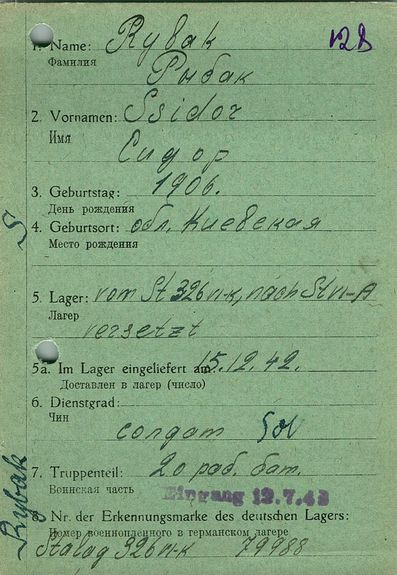 128
1. Name: Rybak
Фамилия
Рыбак
2. Vornamen: Ssidor
Имя
Сидор
3. Geburtstag: 1906.
День рождения
4. Geburtsort: обл. Киевская
Место рождения
5. Lager: vom St 326 VI-K, nach St VI-A
Лагерь
versetzt
5a. Im Lager eingeliefert am: 15.12.42.
Доставлен в лагерь (число)
6. Dienstgrad:
Чин
солдат Sol
7. Truppenteil: 20 раб. бат.
Воинская часть
Eingang 12.7.43
Nr. der Erkennungsmarke des deutschen Lagers:
Номер военнопленного в германском лагере
Stalag 326 VI-K 79988
S
Rybak